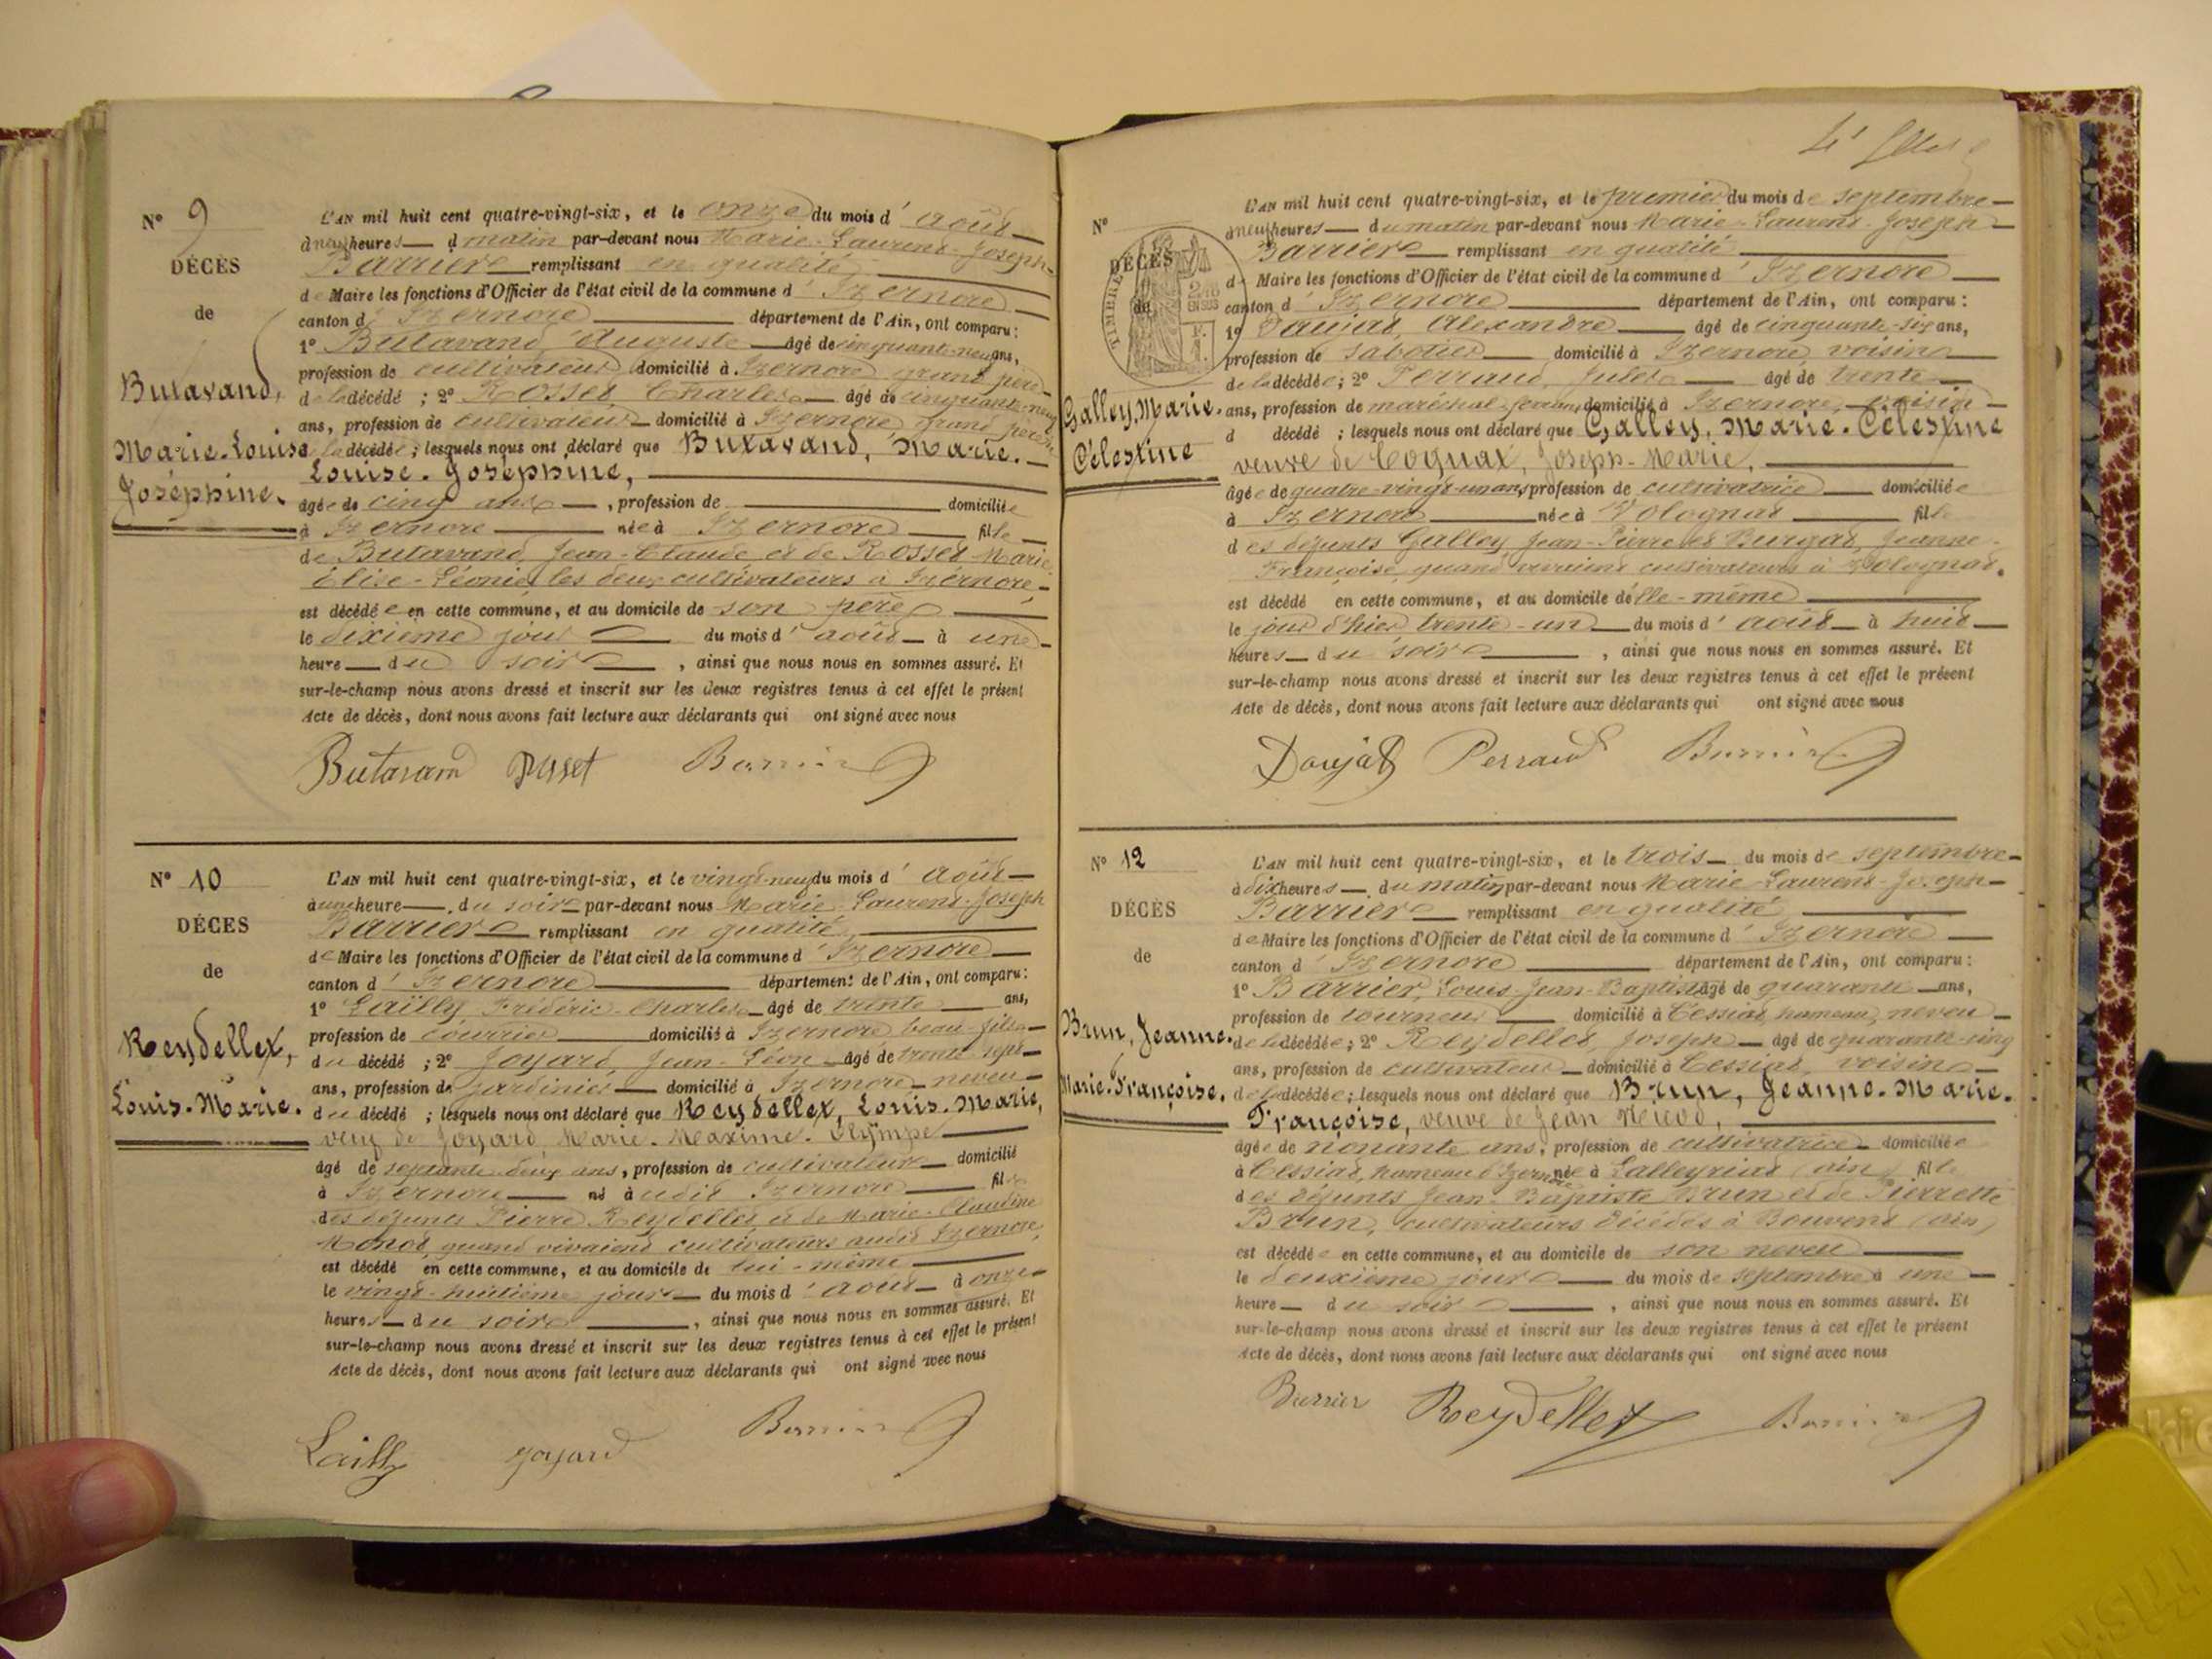 N° 9
DÉCÈS
de
Butavand,
Marie-Louise
Joséphine.
L'AN mil huit cent quatre-vingt-six, et le onze du mois d'août
à neuf heures du matin par-devant nous Marie-Laurent-Joseph
Barrier remplissant en qualité
de Maire les fonctions d'Officier de l'état civil de la commune d'Izernore
canton d'Izernore département de l'Ain, ont comparu :
1° Butavand Auguste âgé de cinquante-neuf ans,
profession de cultivateur domicilié à Izernore grand père
de la décédé ; 2° Rosset Charles âgé de cinquante-neuf
ans, profession de cultivateur domicilié à Izernore, grand père
de la décédée ; lesquels nous ont déclaré que Butavand, Marie-
Louise-Joséphine,
âgée de cinq ans, profession de domiciliée
à Izernore née à Izernore fille
de Butavand, Jean-Claude et de Rosset Marie
Élise-Léonie, les deux cultivateurs à Izernore,
est décédée en cette commune, et au domicile de son père
le dixième jour du mois d'août à une
heure du soir, ainsi que nous nous en sommes assuré. Et
sur-le-champ nous avons dressé et inscrit sur les deux registres tenus à cet effet le présent
Acte de décès, dont nous avons fait lecture aux déclarants qui ont signé avec nous
Butavand Rosset Barrier
N° 10
DÉCÈS
de
Reydellet,
Louis-Marie.
L'AN mil huit cent quatre-vingt-six, et le vingt-neuf du mois d'août
à une heure du soir par-devant nous Marie-Laurent-Joseph
Barrier remplissant en qualité
de Maire les fonctions d'Officier de l'état civil de la commune d'Izernore
canton d'Izernore département de l'Ain, ont comparu :
1° Lailly, Frédéric-Charles âgé de trente ans,
profession de courrier domicilié à Izernore beau-fils
du décédé ; 2° Joyard, Jean-Léon âgé de trente-sept
ans, profession de jardinier domicilié à Izernore neveu
du décédé ; lesquels nous ont déclaré que Reydellet, Louis-Marie,
veuf de Joyard Marie-Maxime-Olympe
âgé de septante-deux ans, profession de cultivateur domicilié
à Izernore né audit Izernore fils
des défunts Pierre Reydellet et de Marie-Claudine
Monod, quand vivaient cultivateurs audit Izernore,
est décédé en cette commune, et au domicile de lui-même
le vingt-huitième jour du mois d'août à onze
heures du soir, ainsi que nous nous en sommes assuré. Et
sur-le-champ nous avons dressé et inscrit sur les deux registres tenus à cet effet le présent
Acte de décès, dont nous avons fait lecture aux déclarants qui ont signé avec nous
Lailly Joyard Barrier
N°
DÉCÈS
de
TIMBRE
Galley, Marie-
Célestine
L'AN mil huit cent quatre-vingt-six, et le premier du mois de septembre
à neuf heures du matin par-devant nous Marie-Laurent-Joseph
Barrier remplissant en qualité
de Maire les fonctions d'Officier de l'état civil de la commune d'Izernore
canton d'Izernore département de l'Ain, ont comparu :
1° Doujat, Alexandre âgé de cinquante-six ans,
profession de sabotier domicilié à Izernore, voisin
de la décédée ; 2° Perraud, Jules âgé de trente
ans, profession de maréchal-ferrant, domicilié à Izernore, voisin
d décédé ; lesquels nous ont déclaré que Galley, Marie-Célestine
veuve de Cognat, Joseph-Marie,
âgée de quatre-vingt-un ans, profession de cultivatrice domiciliée
à Izernore née à Volognat fille
des défunts Galley Jean-Pierre et Burgat, Jeanne-
Françoise, quand vivaient cultivateurs à Volognat.
est décédé en cette commune, et au domicile d'elle-même
le jour d'hier trente-un du mois d'août à huit
heures du soir, ainsi que nous nous en sommes assuré. Et
sur-le-champ nous avons dressé et inscrit sur les deux registres tenus à cet effet le présent
Acte de décès, dont nous avons fait lecture aux déclarants qui ont signé avec nous
Doujat Perraud Barrier
N° 12
DÉCÈS
de
Brun, Jeanne-
Marie-Françoise.
L'AN mil huit cent quatre-vingt-six, et le trois du mois de septembre
à dix heures du matin, par-devant nous Marie-Laurent-Joseph
Barrier remplissant en qualité
de Maire les fonctions d'Officier de l'état civil de la commune d'Izernore
canton d'Izernore département de l'Ain, ont comparu :
1° Barrier, Louis-Jean-Baptiste âgé de quarante ans,
profession de tourneur domicilié à Cessiat, hameau, neveu
de la décédée ; 2° Reydellet, Joseph âgé de quarante-cinq
ans, profession de cultivateur domicilié à Cessiat, voisin
de la décédée ; lesquels nous ont déclaré que Brun, Jeanne-Marie-
Françoise, veuve de Jean
âgée de nonante ans, profession de cultivatrice domiciliée
à Cessiat, hameau d'Izernore née à Lalleyriat (ain) fille
des défunts Jean-Baptiste Brun et de Pierrette
Brun, cultivateurs décédés à Bouvent (ain)
est décédée en cette commune, et au domicile de son neveu
le deuxième jour du mois de septembre à une
heure du soir, ainsi que nous nous en sommes assuré. Et
sur-le-champ nous avons dressé et inscrit sur les deux registres tenus à cet effet le présent
Acte de décès, dont nous avons fait lecture aux déclarants qui ont signé avec nous
Barrier Reydellet Barrier